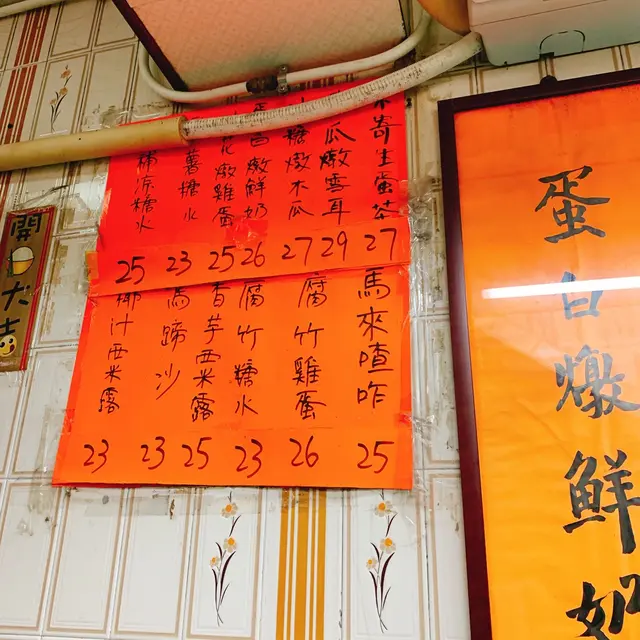 蛋白燉鮮奶
寄生蛋茶 27
瓜燉雪耳 29
糖燉木瓜 27
蛋白燉鮮奶 26
花燉雞蛋 25
薯糖水 23
補涼糖水 25
馬來喳咋 25
腐竹雞蛋 26
腐竹糖水 23
香芋西米露 25
馬蹄沙 23
椰汁西米露 23
開大吉